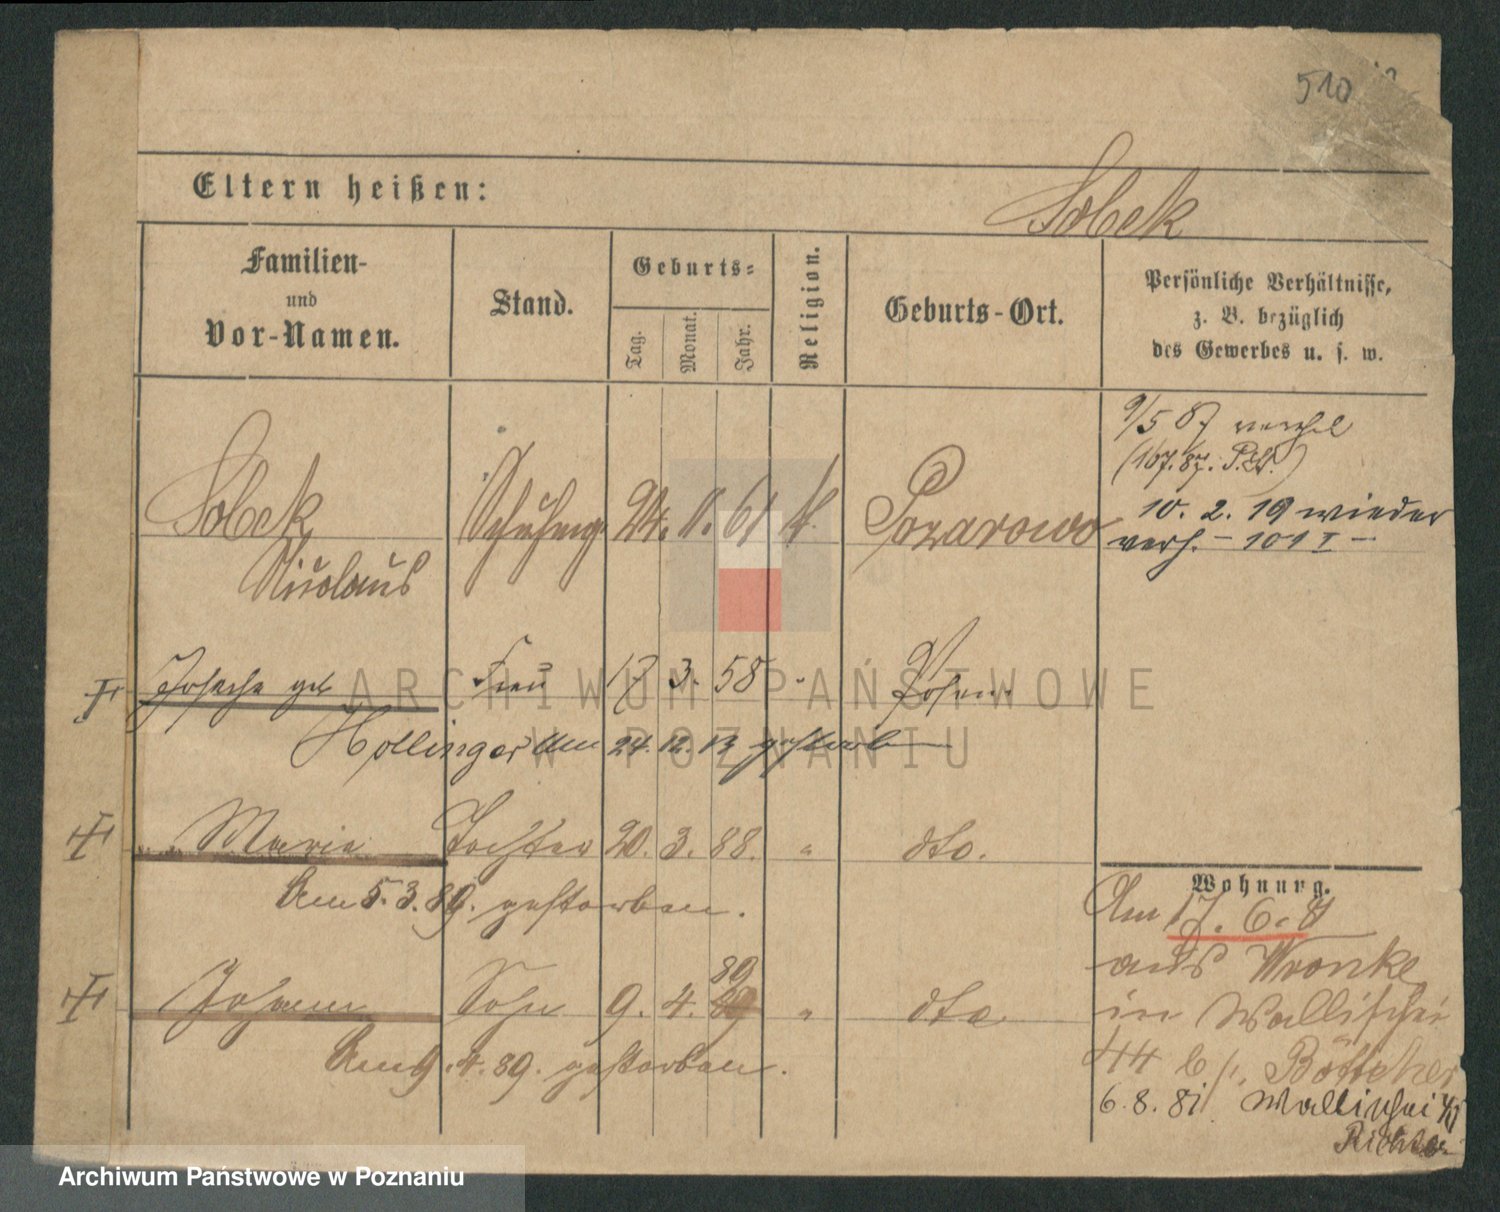 510
Eltern heißen:
Sobek
Familien-
und
Vor-Namen.
Stand.
Geburts-
Tag.
Monat.
Jahr.
Religion.
Geburts-Ort.
Persönliche Verhältnisse,
z. B. bezüglich
des Gewerbes u. s. w.
9/5 87 verehel
(167.87. )
10. 2. 19 wieder
verh. - 101 I -
Sobek 24. 61 k.
Nicolaus
geb Frau 17 3. 58 "
Hollinger Am 24. 12. 13 gestorben
Marie Tochter 20. 3. 88. " dto.
Am 5. 3. 89. gestorben.
89
Johann Sohn 9. 4. " dto.
Am 9. 4. 89. gestorben.
Wohnung.
Am 17. 6. 81
aus Wronke
in Wallischei
44 b/. Böttcher
6. 8. 81 Wallischei
Richter
ARCHIWUM PAŃSTWOWE
W POZNANIU
Archiwum Państwowe w Poznaniu